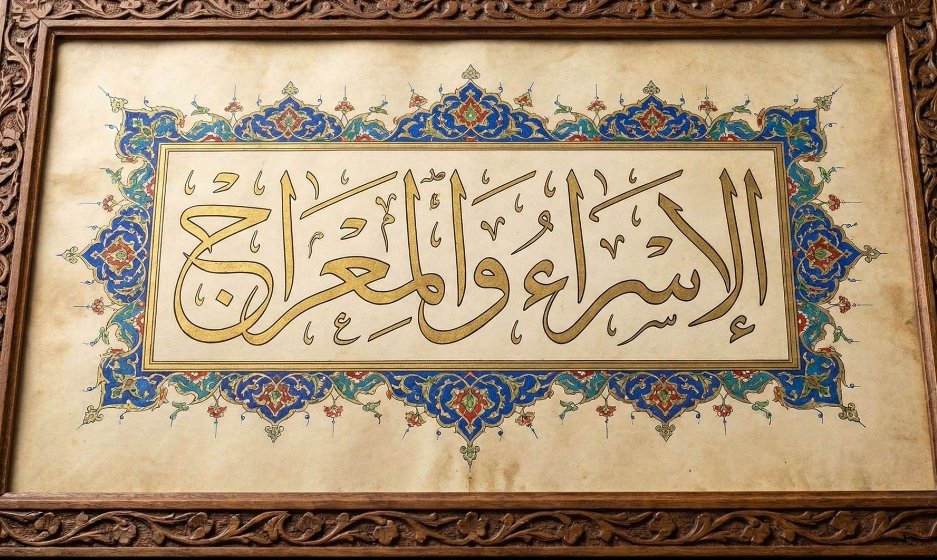 الإسراءُ والمعراج